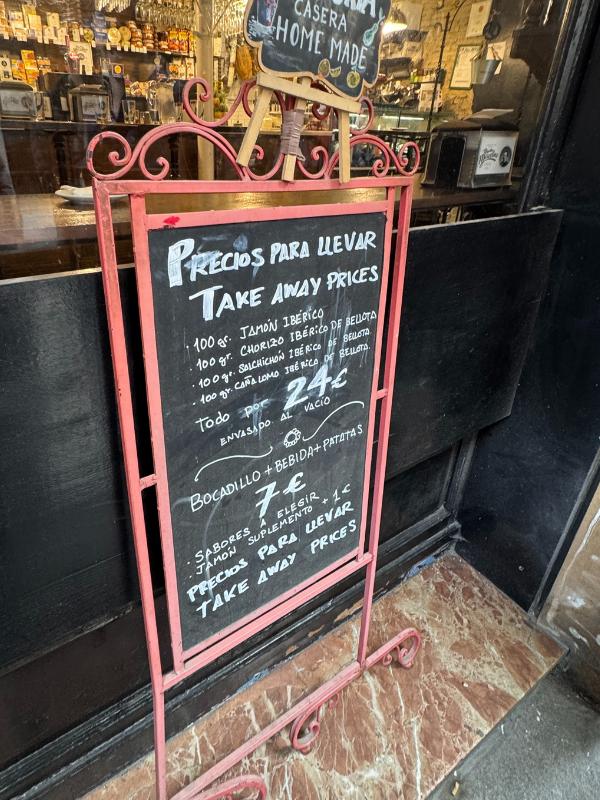 CASERA
HOME MADE
PRECIOS PARA LLEVAR
TAKE AWAY PRICES
· 100 gr. JAMÓN IBÉRICO
· 100 gr. CHORIZO IBÉRICO DE BELLOTA
· 100 gr. SALCHICHÓN IBÉRICO DE BELLOTA.
· 100 gr. CAÑA LOMO IBÉRICO DE BELLOTA.
TODO POR 24€
ENVASADO AL VACIO
BOCADILLO + BEBIDA + PATATAS
7€
· SABORES A ELEGIR
· JAMÓN SUPLEMENTO + 1€
PRECIOS PARA LLEVAR
TAKE AWAY PRICES